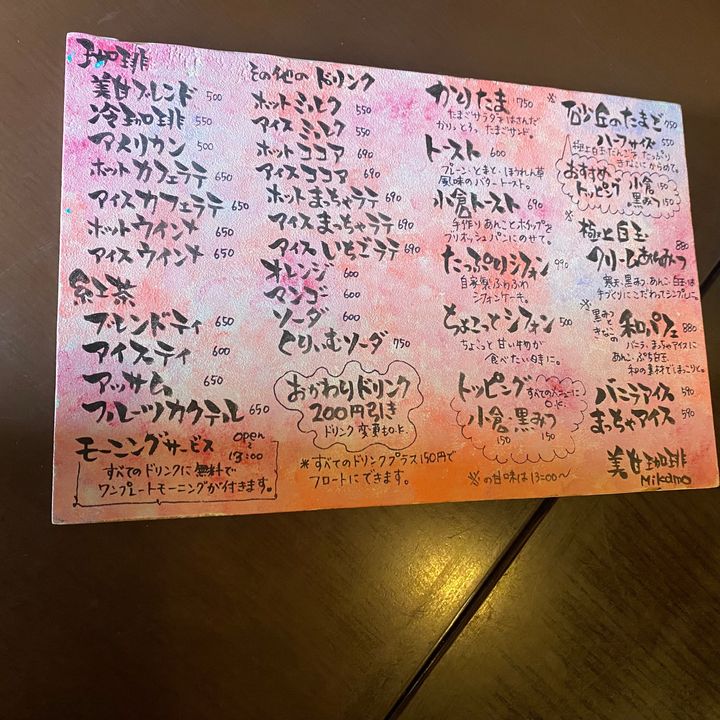 珈琲
美甘ブレンド 500
冷珈琲 550
アメリカン 500
ホットカフェラテ 650
アイスカフェラテ 650
ホットウインナ 650
アイスウインナ 650
紅茶
ブレンドティ 650
アイスティ 600
アッサム 650
フルーツカクテル 650
モーニングサービス open~13:00
すべてのドリンクに無料で
ワンプレートモーニングが付きます。
その他のドリンク
ホットミルク 550
アイスミルク 550
ホットココア 690
アイスココア 690
ホットまっちゃラテ 690
アイスまっちゃラテ 690
アイスいちごラテ 690
オレンジ 600
マンゴー 600
ソーダ 600
くりぃむソーダ 750
おかわりドリンク
200円引き
ドリンク変更もo.k.
*すべてのドリンクプラス150円で
フロートにできます。
かりたま 750
たまごサラダをはさんだ
かりっ、とろっ、たまごサンド。
トースト 600
プレーン・とまと・ほうれん草
風味のバタートースト。
小倉トースト 690
手作りあんことホイップを
ブリオッシュパンにのせて。
たっぷりシフォン 990
自家製ふわふわ
シフォンケーキ。
ちょこっとシフォン 500
ちょこっと甘い物が
食べたい時に。
トッピング すべてのメニューに
o.k.
小倉 黒みつ
150 150
※の甘味は13:00〜
※砂金のたまご 750
ハーフサイズ 550
極上白玉だんごをたっぷり
きなこにからめて。
おすすめ
トッピング 小倉 150
黒みつ 150
※極上白玉
クリームあんみつ 880
寒天・黒みつ・あんこ・白玉は
手づくりにこだわってシンプルに。
※黒みつときなこの
和パフェ 880
バニラ、まっちゃアイスに
あんこ・ぷち白玉
和の素材でほっこりと。
バニラアイス 590
まっちゃアイス 590
美甘珈琲
Mikamo